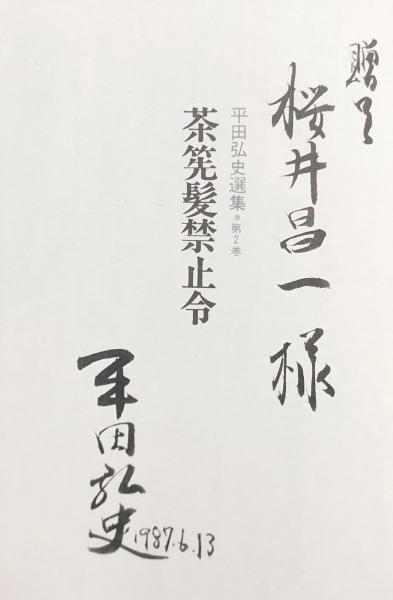 贈呈
桜井昌一様
平田弘史選集*第2巻
茶筅髪禁止令
平田弘史
1987.6.13